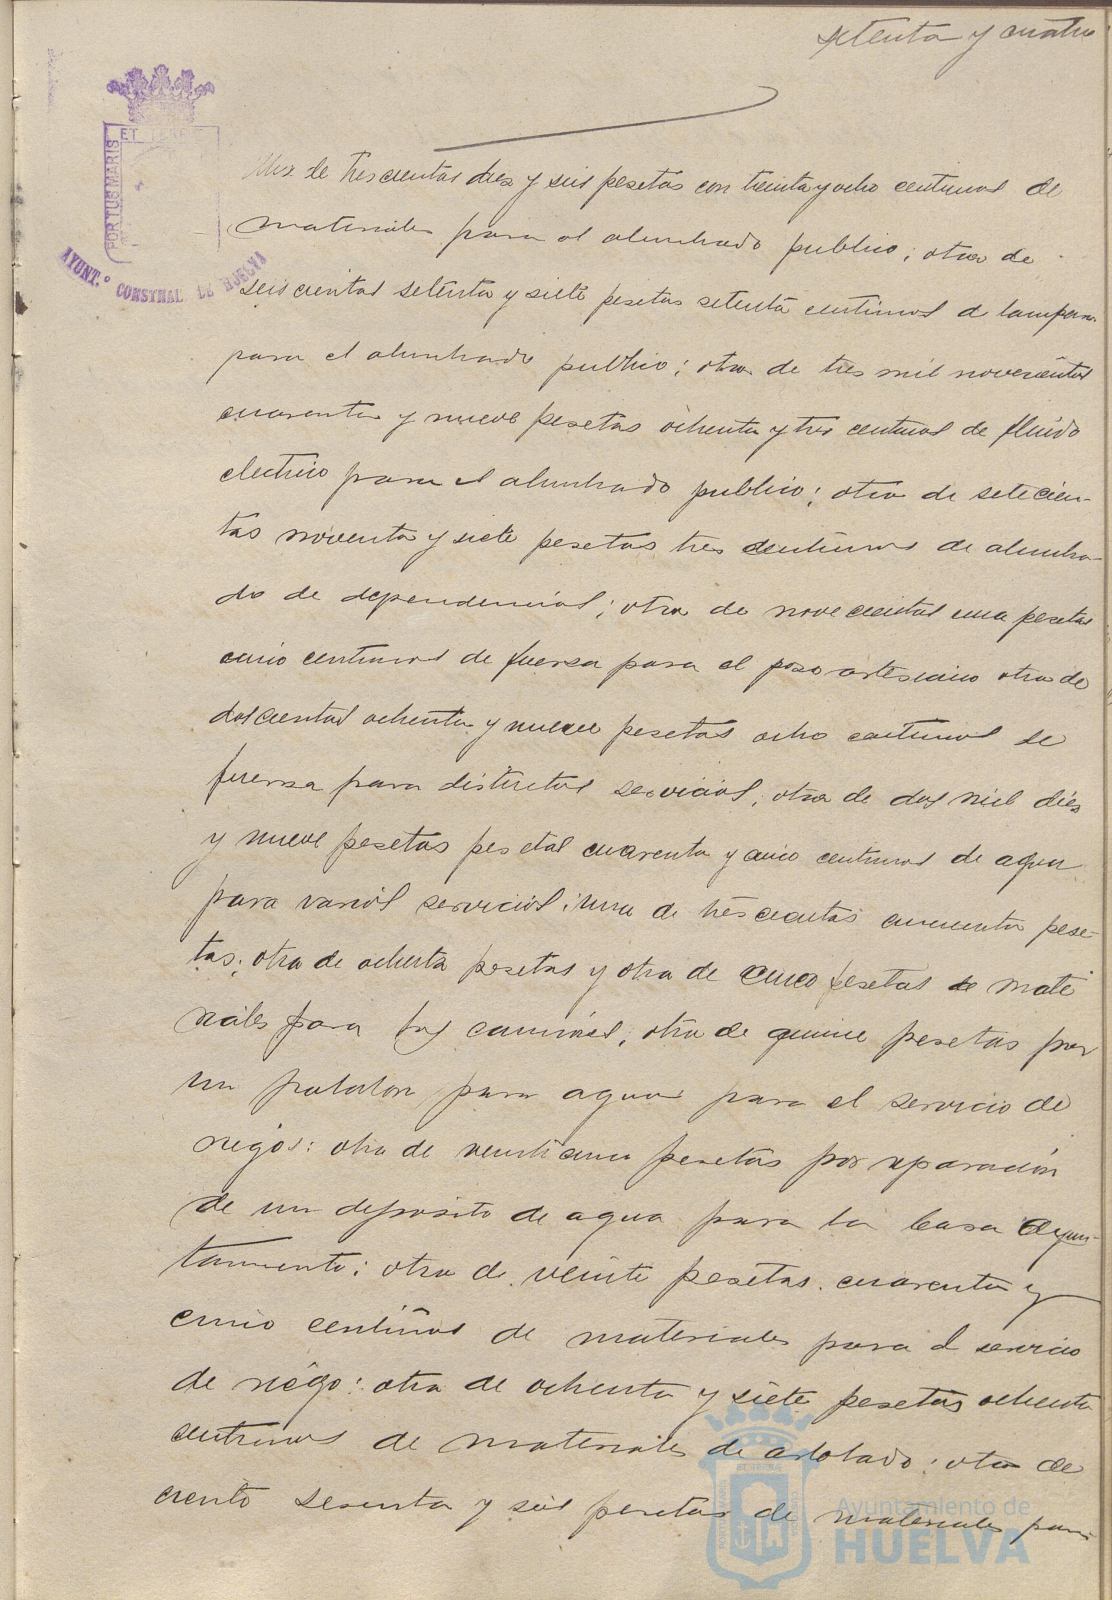 setenta y cuatro
ET TERRE
PORTUS MARIS
AYUNT.º CONSTNAL DE HUELVA
Una de trescientas diez y seis pesetas con treinta y ocho centimos de
materiales para el alumbrado publico; otra de
seiscientas setenta y siete pesetas setenta centimos de lamparas
para el alumbrado publico; otra de tres mil novecientas
cuarenta y nueve pesetas ochenta y tres centimos de fluido
electrico para el alumbrado publico; otra de setecien-
tas noventa y siete pesetas tres centimos de alumbra-
do de dependencias; otra de novecientas una pesetas
cinco centimos de fuerza para el poso artesiano otra de
doscientas ochenta y nueve pesetas ocho centimos de
fuerza para distintos servicios; otra de dos mil dies
y nueve pesetas pesetas cuarenta y cinco centimos de agua
para varios servicios; una de trescientas cincuenta pese-
tas; otra de ochenta pesetas y otra de cinco pesetas de mate
riales para los caminos; otra de quince pesetas por
un para agua para el servicio de
riegos: otra de veinticinco pesetas por reparación
de un deposito de agua para la Casa Ayun-
tamiento; otra de veinte pesetas cuarenta y
cinco centimos de materiales para el servicio
de riego: otra de ochenta y siete pesetas ochenta
centimos de materiales de arbolado; otra de
ciento sesenta y seis pesetas de materiales para
Ayuntamiento de
HUELVA